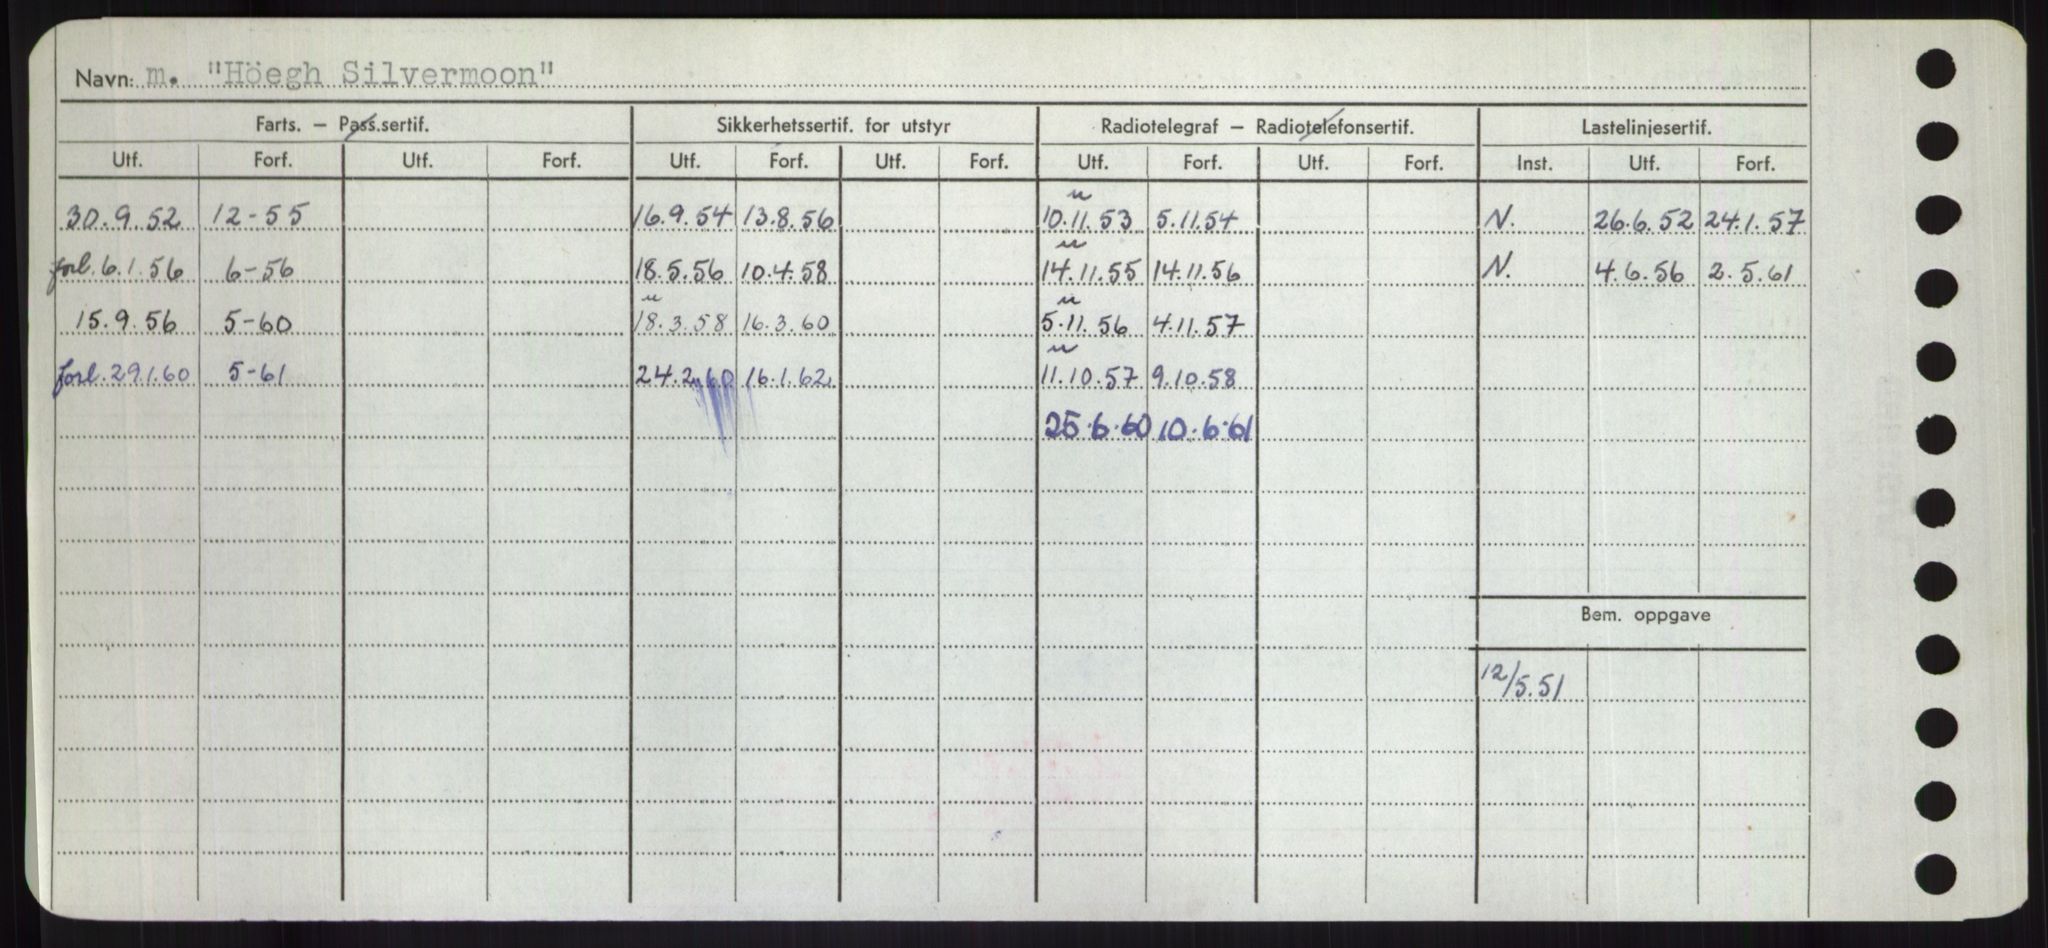 Navn: m. "Höegh Silvermoon"
Farts. – Pass.sertif. Sikkerhetssertif. for utstyr Radiotelegraf – Radiotelefonsertif. Lastelinjesertif.
Utf. Forf. Utf. Forf. Utf. Forf. Utf. Forf. Utf. Forf. Utf. Forf. Inst. Utf. Forf.
30.9.52 12-55 16.9.54 13.8.56 10.11.53 5.11.54 N. 26.6.52 24.1.57
forl. 6.1.56 6-56 18.5.56 10.4.58 14.11.55 14.11.56 N. 4.6.56 2.5.61
15.9.56 5-60 18.3.58 16.3.60 5.11.56 4.11.57
forl. 29.1.60 5-61 24.2.60 16.1.62 11.10.57 9.10.58
25.6.60 10.6.61
Bem. oppgave
12/5.51